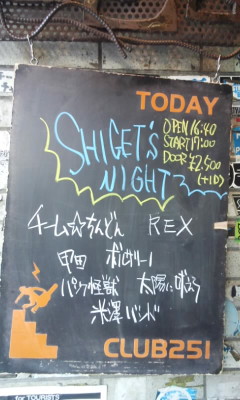 TODAY
SHIGET'S
NIGHT
OPEN 16:40
START 17:00
DOOR ¥2,500
(+1D)
チーム☆ちんどん REX
甲田 ボルガリーノ
パンク怪獣 太陽に吠えろ
米澤バンド
CLUB251
for TOURISTS